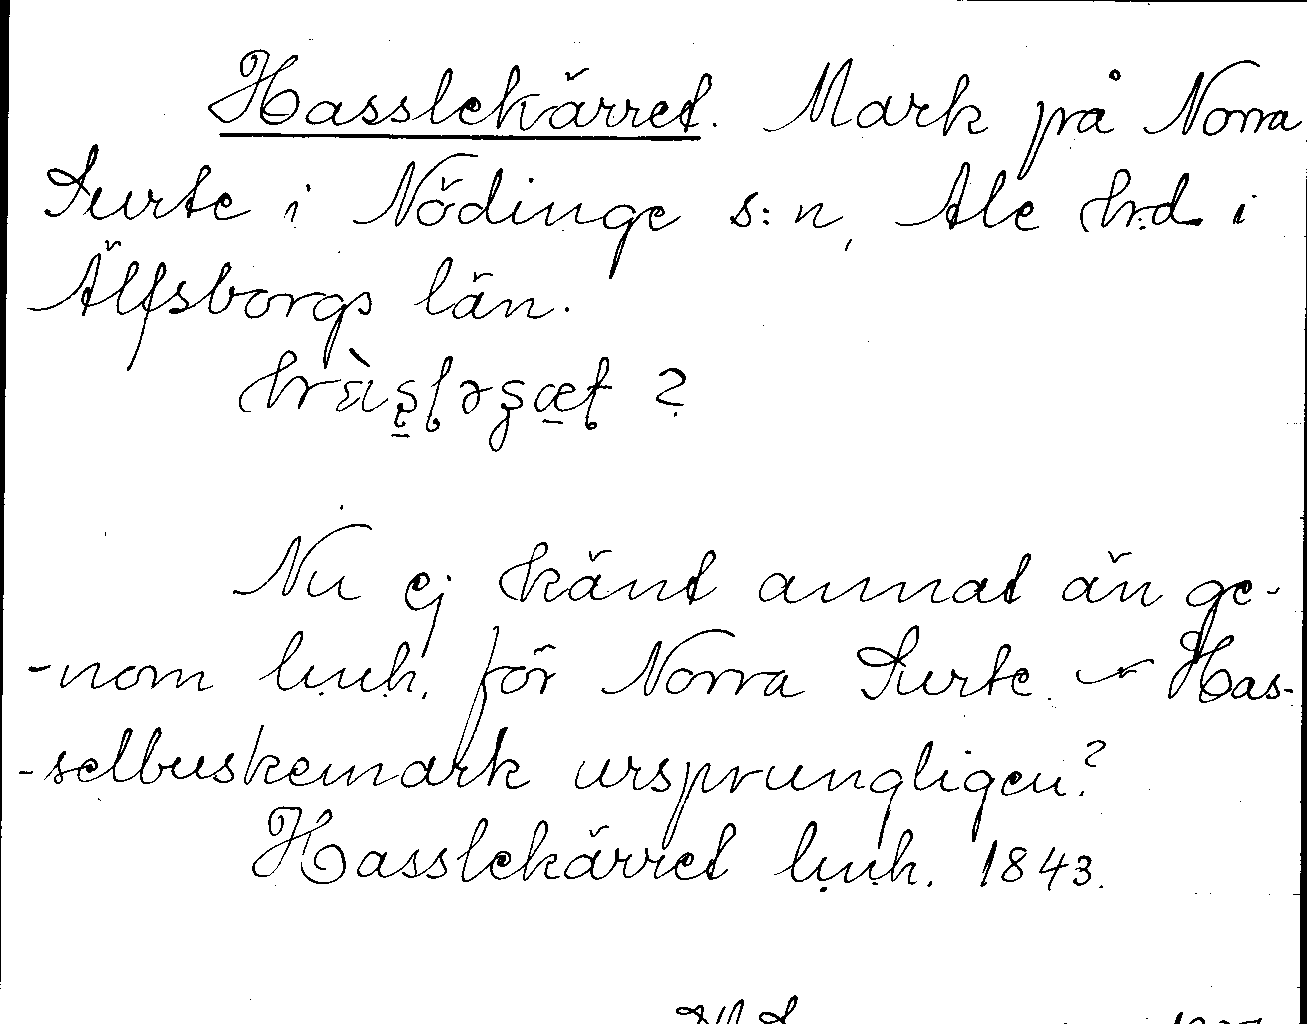 Hasslekärret. Mark på Norra
Surte i Nödinge s:n, Ale hrd i
Älfsborgs län.
?
Nu ej känt annat än ge-
-nom l.u.h. för Norra Surte. Has-
-selbuskemark ursprungligen?
Hasslekärret l.u.h. 1843.